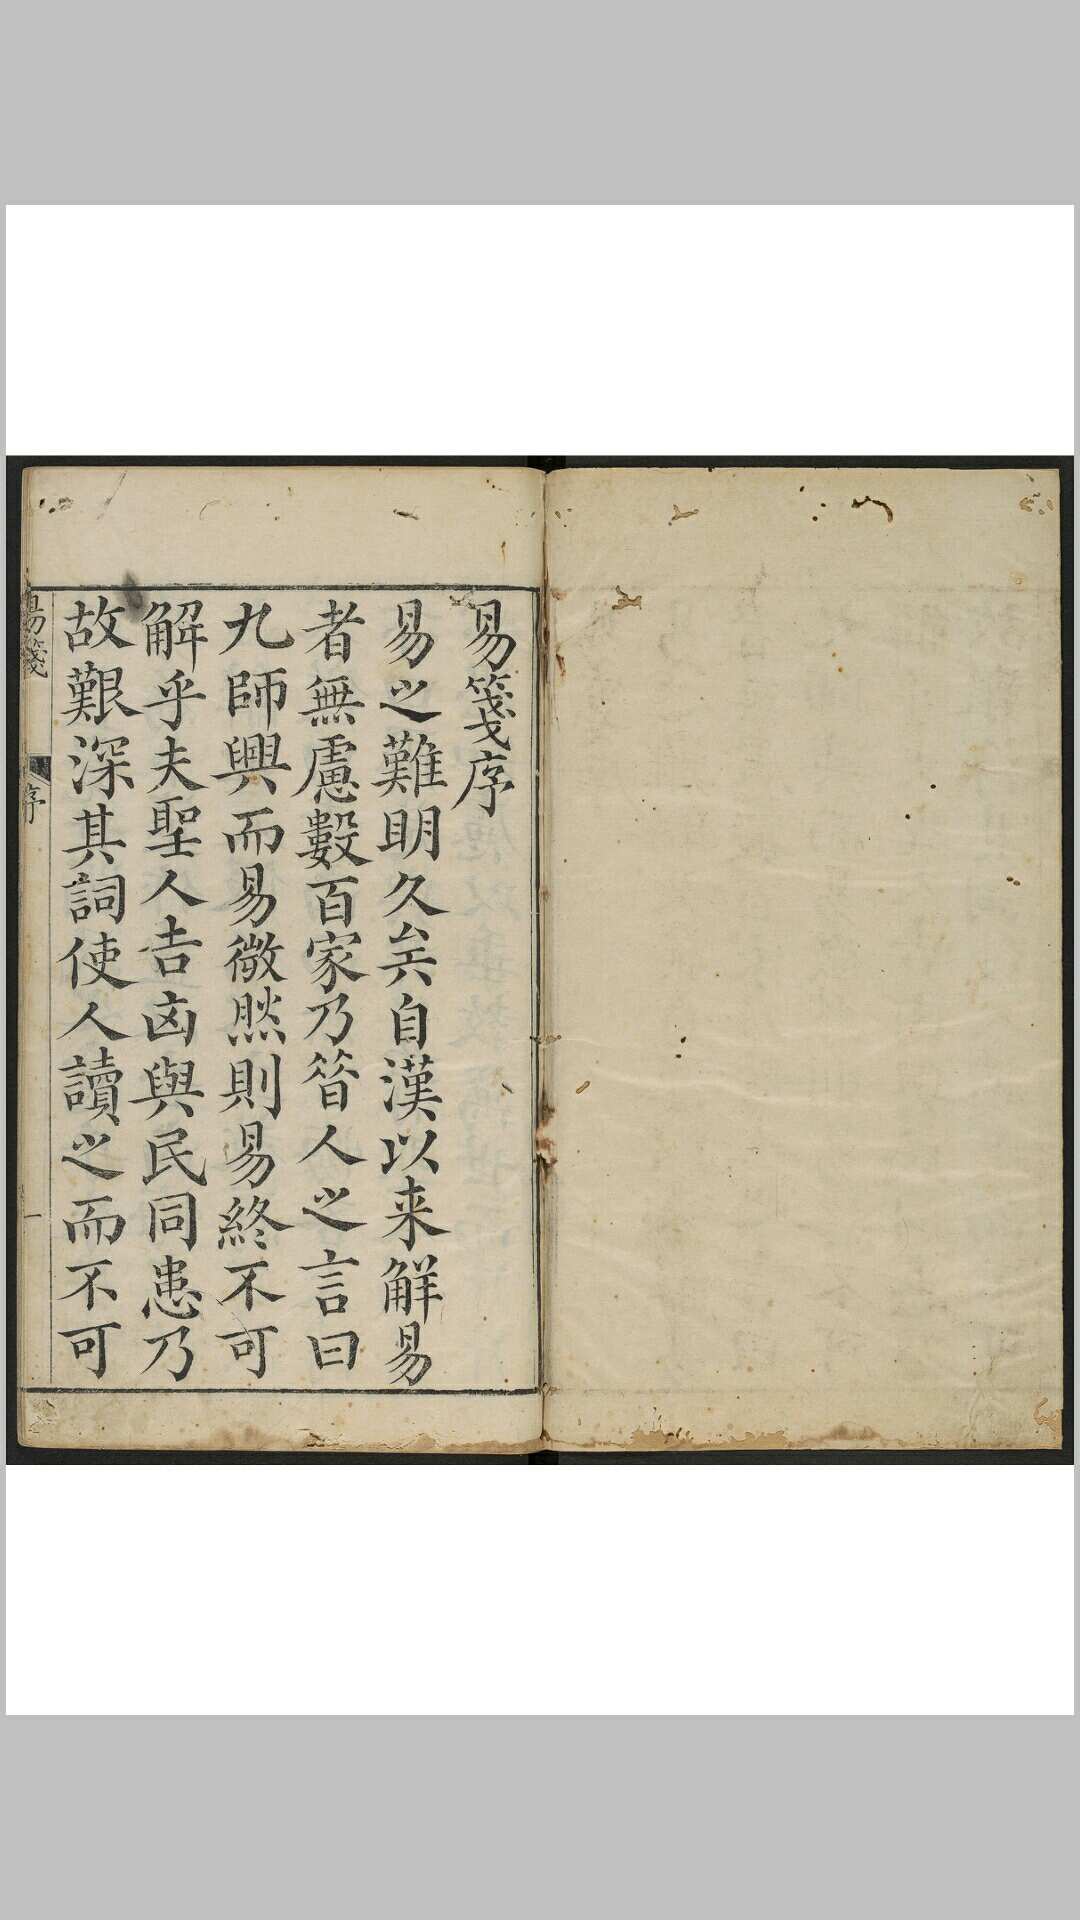 易箋序
易之難明久矣自漢以来解易
者無慮數百家乃昔人之言曰
九師興而易微然則易終不可
解乎夫聖人吉凶與民同患乃
故艱深其詞使人讀之而不可
易箋
序
一